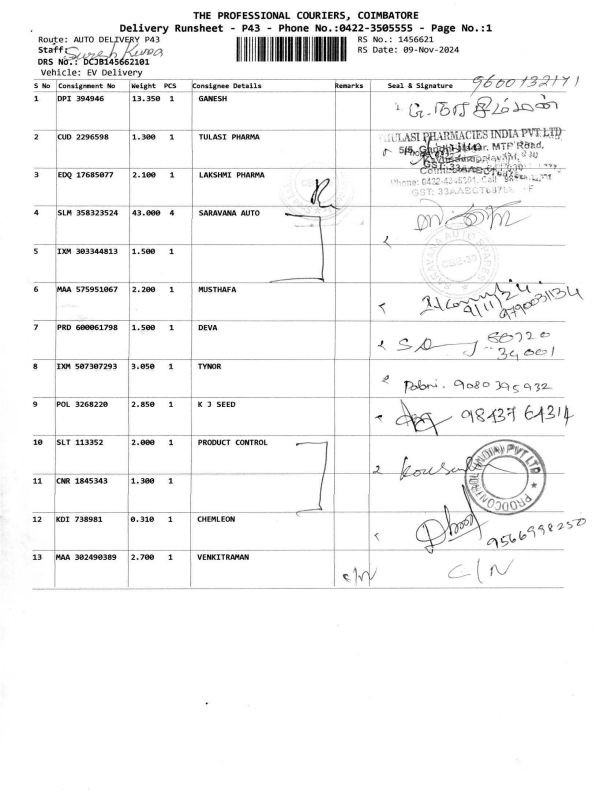 THE PROFESSIONAL COURIERS, COIMBATORE
Delivery Runsheet - P43 - Phone No.:0422-3505555 - Page No.:1
Route: AUTO DELIVERY P43 RS No.: 1456621
Staff: Suresh Kumar RS Date: 09-Nov-2024
DRS No.: DCJB145662101
Vehicle: EV Delivery
9600132171
S No Consignment No Weight PCS Consignee Details Remarks Seal & Signature
1 DPI 394946 13.350 1 GANESH
2 CUD 2296598 1.300 1 TULASI PHARMA THULASI PHARMACIES INDIA PVT.LTD
MTP Road,
3 EDQ 17685077 2.100 1 LAKSHMI PHARMA
4 SLM 358323524 43.000 4 SARAVANA AUTO
SARAVANA AUTO SPARES
5 IXM 303344813 1.500 1
6 MAA 575951067 2.200 1 MUSTHAFA
9/11/24
9790031134
7 PRD 600061798 1.500 1 DEVA
80720
34001
8 IXM 507307293 3.050 1 TYNOR
9080395932
9 POL 3268220 2.850 1 K J SEED 98437 64314
10 SLT 113352 2.000 1 PRODUCT CONTROL
11 CNR 1845343 1.300 1
12 KDI 738981 0.310 1 CHEMLEON
9566998250
13 MAA 302490389 2.700 1 VENKITRAMAN C/N C/N